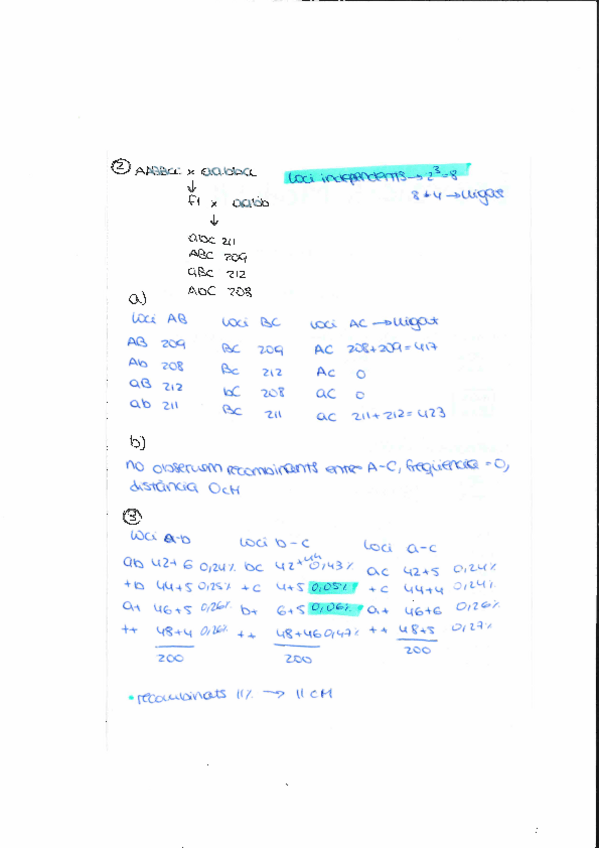 ② AABBCC x aabbcc   Loci independents → 2³=8
↓
F1 x aabb   8≠4 → lligat
↓
abc 211
ABC 209
aBc 212
AbC 208
a)
Loci AB   Loci BC   Loci AC → lligat
AB 209   BC 209   AC 208+209=417
Ab 208   Bc 212   Ac 0
aB 212   bC 208   aC 0
ab 211   Bc 211   ac 211+212=423
b)
no observem recombinants entre A-C, freqüència = 0,
distància 0cM
③
Loci a-b   Loci b-c   Loci a-c
ab 42+6 0,24%   bc 42+44 0,43%   ac 42+5 0,24%
+b 44+5 0,25%   +c 4+5 0,05%   +c 44+4 0,24%
a+ 46+5 0,26%   b+ 6+5 0,06%   a+ 46+6 0,26%
++ 48+4 0,26%   ++ 48+46 0,47%   ++ 48+5 0,27%
200   200   200
• recombinats 11% → 11 cM